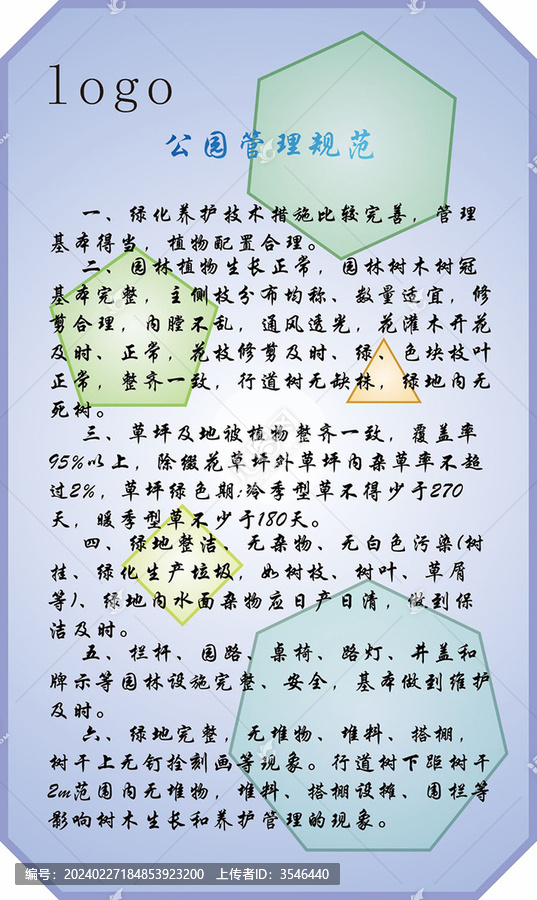 logo
公园管理规范
一、绿化养护技术措施比较完善，管理
基本得当，植物配置合理。
二、园林植物生长正常，园林树木树冠
基本完整，主侧枝分布均称、数量适宜，修
剪合理，内膛不乱，通风透光，花灌木开花
及时、正常，花枝修剪及时、绿、色块枝叶
正常，整齐一致，行道树无缺株，绿地内无
死树。
三、草坪及地被植物整齐一致，覆盖率
95%以上，除缀花草坪外草坪内杂草率不超
过2%，草坪绿色期:冷季型草不得少于270
天，暖季型草不少于180天。
四、绿地整洁、无杂物、无白色污染(树
挂、绿化生产垃圾，如树枝、树叶、草屑
等)、绿地内水面杂物应日产日清，做到保
洁及时。
五、栏杆、园路、桌椅、路灯、井盖和
牌示等园林设施完整、安全，基本做到维护
及时。
六、绿地完整，无堆物、堆料、搭棚，
树干上无钉拴刻画等现象。行道树下距树干
2m范围内无堆物，堆料、搭棚设摊、围栏等
影响树木生长和养护管理的现象。
编号：20240227184853923200 上传者ID：3546440